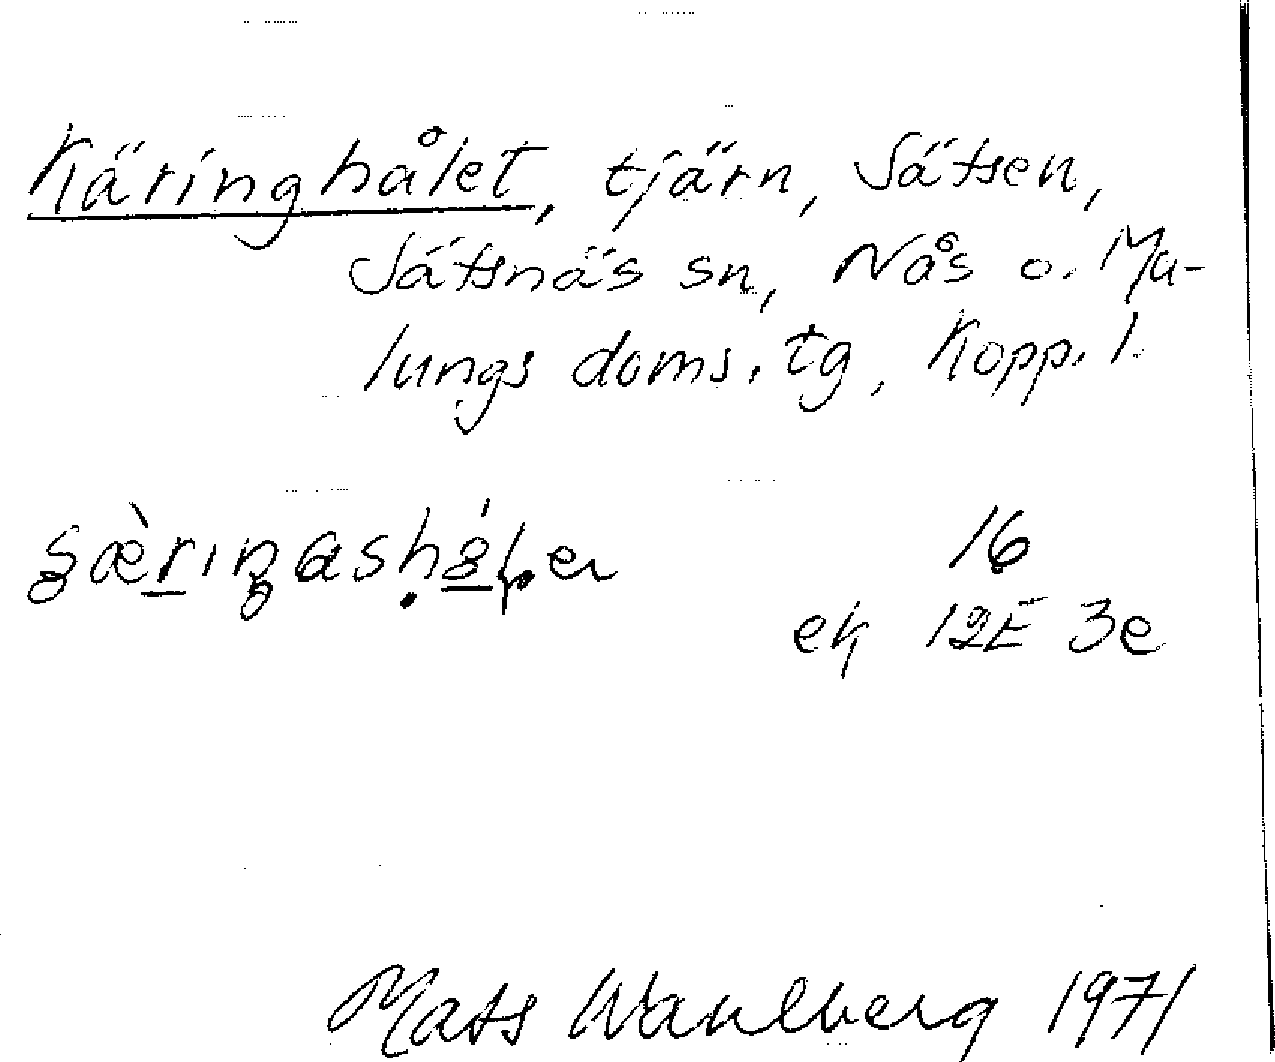 Käringhålet, tjärn, Sätsen,
Sätsnäs sn, Nås o. Ma-
lungs doms. tg, Kopp. l.
16
ek 12E 3e
Mats Wahlberg 1971